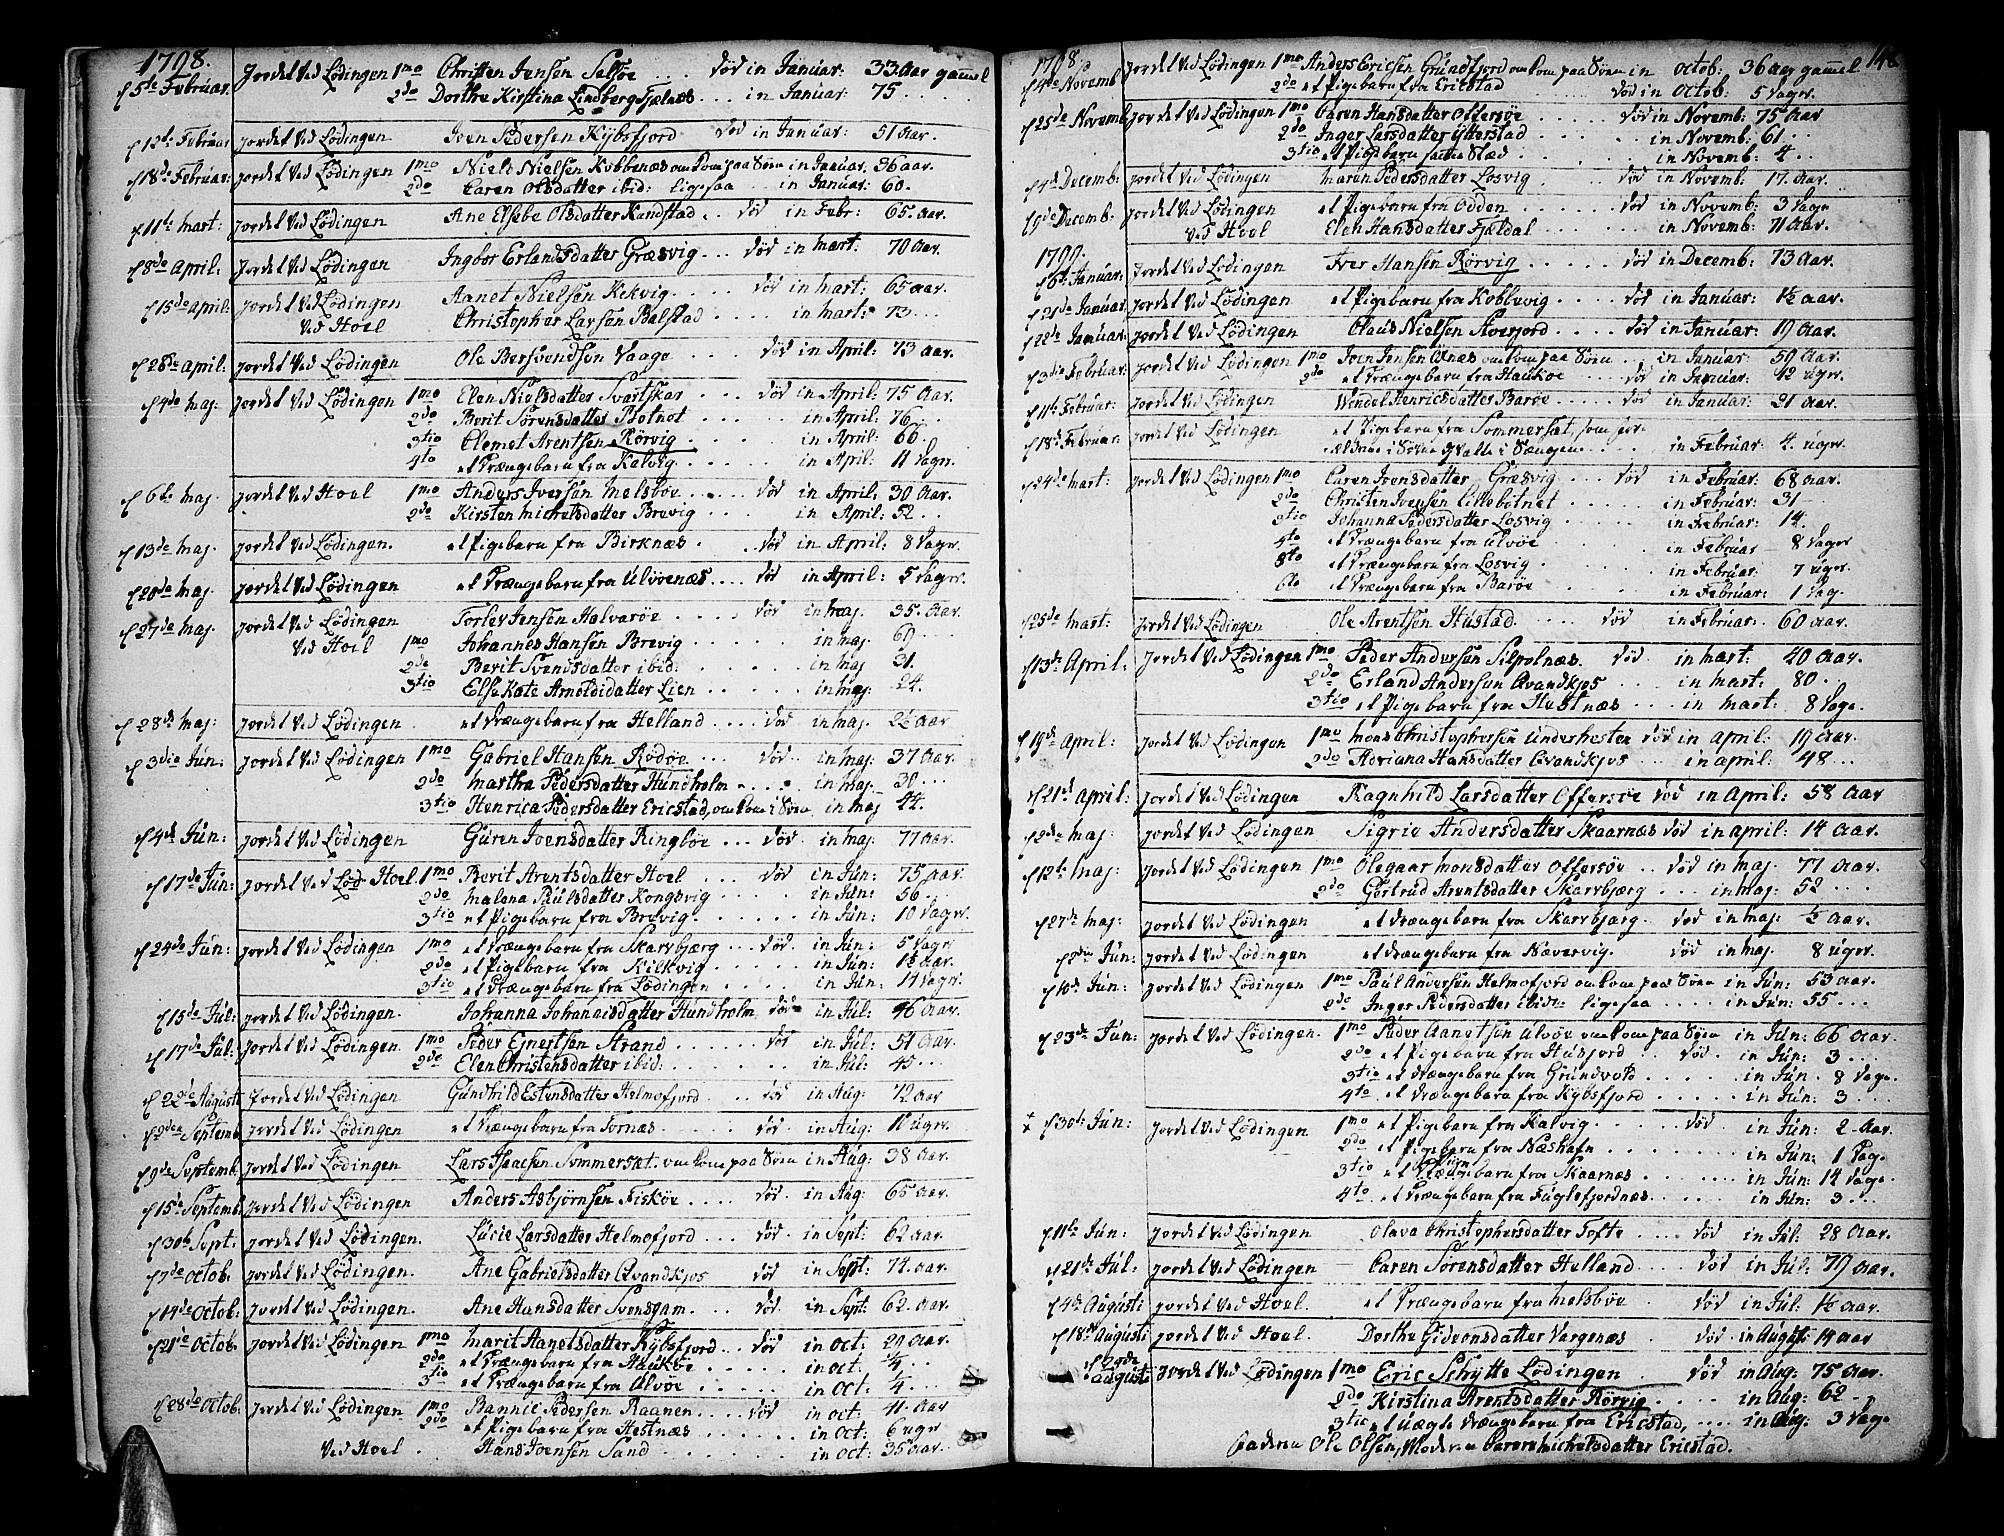 1798.
d 5te Februar. Jordet ved Lödingen 1mo Christen Jensen Selsöe .... död in Januar: 33 Aar gammel
2do Dorthe Kirstina Lindberg Fjelnæs ... in Januar: 75
d 12te Februar Jordet ved Lödingen Joen Pedersen Kybsfjord död in Januar: 51 Aar.
d 18de Februar: Jordet ved Lödingen 1mo Niels Nielsen Kobbenæs omkom paa Söen in Januar. 36 aar.
2do Caren Olsdatter ibid: ligesaa .. in Januar: 60.
d 11te Mart: Jordet ved Lödingen Ane Elsebe Olsdatter Kandstad .. död in Febr: 65 Aar.
d 8de April. Jordet ved Lödingen Ingbor Erlandsdatter Græsvig ... död in Mart: 70 Aar.
d 15de April: Jordet ved Lödingen Aanet Nielsen Kekvig .... död in Mart: 65 aar.
ved Hoel Christopher Larsen Balstad .... in Mart: 73 ...
d 26de April: Jordet ved Lödingen Ole Bersvendsen Vaage .... död in April: 73 aar.
d 4de Maj Jordet ved Lödingen 1mo Elen Nielsdatter Svartskar .. död in April: 75 Aar.
2do Berit Sörensdatter Botnet .... in April: 76 ..
3tio Clemet Arentsen Rörvig ..... in April: 66
4to et Drængebarn fra Kalvig ..... in April: 11 Dager.
d 6te Maj Jordet ved Hoel 1mo Anders Iversen Melsböe ..... död in April. 30 Aar.
2do Kirsten Michelsdatter Brevig .... in April: 52 ...
d 13de Maj. Jordet ved Lödingen. et Pigebarn fra Birknæs .... död in April: 8 Dager.
d 20de Maj. Jordet ved Lödingen et Drængebarn fra Ulvöenæs .... död in April. 5 Dager.
d 27de Maj. Jordet ved Lödingen Torlev Jensen Halvaröe .... död in Maj. 35. Aar.
ved Hoel 1mo Johannes Hansen Brevig ..... in Maj: 69 ..
2do Berit Svendsdatter ibid: ..... in Maj 31.
3tio Else Kate Arnoldsdatter Lien ..... in Maj. 24.
d 28de Maj: Jordet ved Lödingen et Drængebarn fra Helland .... död in Maj. 2½ Aar
d 3die Jun: Jordet ved Lödingen 1mo Gabriel Hansen Rödöe .... död in Maj. 37 Aar.
2do Martha Pedersdatter Hundholm .... in Maj. 30 ...
3tio Henrica Pedersdatter Ericstad, omkom i Söen in Maj 44.
d 4de Jun: Jordet ved Lödingen Guren Joensdatter Ringböe ... död. in Maj. 77 aar.
d 17de Jun: Jordet ved Hoel. 1mo Berit Arentsdatter Hoel .... död in Jun: 75 Aar.
2do Malena Paulsdatter Kongsvig ..... in Jun: 56 ..
3tio et Pigebarn fra Brevig ..... in Jun: 10 Dager.
d 24de Jun: Jordet ved Lödingen 1mo et Drængebarn fra Skarvbjerg ... död. in Jun: 5 Dager
2do et Pigebarn fra Kilkvig .... in Jun: 1½ Aar.
3tio et Drængebarn fra Lödingen .... in Jun: 14 Dager.
d 15de Jul: Jordet ved Lödingen. Johanna Johannisdatter Hundholm död. in Jul: 46 Aar.
d 17de Jul: Jordet ved Lödingen. 1mo Peder Ernertsen Strand .... död in Jul: 51 Aar.
2do Elen Christensdatter ibid: ..... in Jul: 45 ...
d 22de August Jordet ved Lödingen Gunhild Estensdatter Helmofjord ... död in Aug: 72 Aar
d 2den Septemb. Jordet ved Lödingen et Drængebarn fra Tornæs ..... död. in Aug: 10 Uger.
d 9de Septemb. Jordet ved Lödingen Lars Isacsen Sommersæt. omkom paa Söen in Aug: 38 Aar.
d 15de Septemb. Jordet ved Lödingen Anders Asbjörnsen Fisköe .... död. in Aug. 65 Aar.
d 30te Sept: Jordet ved Lödingen. Lucie Larsdatter Helmofjord .... död. in Sept: 62 Aar.
d 7de Octob. Jordet ved Lödingen. Ane Gabrielsdatter Qvandkjos död in Sept: 74 aar.
d 14de Octob: Jordet ved Lödingen. Ane Hansdatter Svensgam .... död. in Sept: 62. Aar.
d 21de Octob. Jordet ved Lödingen 1mo Marit Aanetsdatter Kybsfjord död in Oct: 20 Aar.
2do et Drængebarn fra Haukøe ... in Oct: ¼ ..
3tio et Drængebarn fra Ulvöe ..... in Oct: ¼ ...
d 28de Octob. Jordet ved Lödingen 1mo Bannic Pedersen Raanen ... död in Oct: 41 Aar
2do et Pigebarn fra Hestnæs ..... in Oct: 6 uger
ved Hoel. Hans Joensen Sand ..... in Oct: 35 aar.
1798. 146
d 4de Novemb Jordet ved Lödingen 1mo Anders Ericsen Grundfjord omkom paa Söen in Octob: 36 aar gammel
2do et Pigebarn fra Ericstad .... död in Octob: 5 Dager.
d 25de Novemb Jordet ved Lödingen 1mo Caren Hansdatter Offersöe .... död in Novemb: 75 Aar
2do Inger Larsdatter Ytterstad .... in Novemb: 61 ..
3tio et Pigebarn samme Stæd . .... in Novemb: 4 ..
d 4de Decemb: Jordet ved Lödingen Maren Pedersdatter Losvig .... död in Novemb. 17. Aar.
d 9de Decemb. Jordet ved Lödingen et Pigebarn fra Odden .... död in Novemb: 3 Dager
ved Hoel Elen Hansdatter Fjeldal .... in Novemb: 71 Aar.
1799.
d 6te Januar: Jordet ved Lödingen Iver Hansen Rörvig ..... död in Decemb: 73 Aar.
d 21de Januar: Jordet ved Lödingen et Pigebarn fra Koblevig .... död in Januar: 1½ aar.
d 22de Januar: Jordet ved Lödingen Claus Nielsen Stoerfjord .... död in Januar: 19 Aar.
d 3die Februar: Jordet ved Lödingen 1mo Joen Jensen Öxnæs omkom paa Söen .. in Januar: 59 Aar.
2do et Drængebarn fra Haukøe .... död in Januar: 12 uger.
d 11te Februar: Jordet ved Lödingen Wendel Henricsdatter Baröe .... död in Januar: 21 Aar.
d 18de Februar: Jordet ved Lödingen et Pigebarn fra Sommersæt, som for-
ældrene i Söfne qvalte i Sængen ... in Februar: 4. uger.
d 24de Mart: Jordet ved Lödingen 1mo Caren Ivensdatter Græsvig .... död in Februar: 68 Aar.
2do Christen Ivensen Lillebotnet ..... in Februar: 31 ..
3tio Johanna Pedersdatter Losvig .... in Februar: 14.
4to et Drængebarn fra Ulvöe ..... in Februar 8 Dager
5to et Drængebarn fra Losvig ..... in Februar: 7 uger.
6to et Drængebarn fra Baröe .... in Februar: 1 Dag.
d 25de Mart: Jordet ved Lödingen Ole Arentsen Hustad .... död in Februar: 60 Aar.
d 13de April: Jordet ved Lödingen 1mo Peder Andersen Silpolnæs. död in Mart: 20 Aar.
2do Erland Andersen Qvandkjos .... in Mart: 80 .
3tio et Pigebarn fra Hustnæs .... in Mart: 8 Dage.
d 19de April: Jordet ved Lödingen 1mo Mons Christophersen Underhesten död in April: 19 Aar.
2do Adriana Hansdatter Qvandkjos ... in April: 48 ...
d 21de April: Jordet ved Lödingen Ragnhild Larsdatter Offersöe död in April: 58 Aar
d 2de Maj Jordet ved Lödingen Sigrie Andersdatter Skaarnæs död in April: 14 Aar.
d 12te Maj: Jordet ved Lödingen 1mo Olegaar Monsdatter Offersöe .. död in Maj. 77 Aar.
2do Gertrud Arentsdatter Skarvbjerg ... in Maj: 52 ....
d 27de Maj: Jordet ved Lödingen et Drængebarn fra Skarvbjerg. död in Maj. ½ Aar.
d 2den Jun: Jordet ved Lödingen et Drængebarn fra Nævervig. död in Maj. 8 uger.
d 10de Jun: Jordet ved Lödingen 1mo Paul Andersen Helmofjord omkom paa Söen in Jun: 53 Aar.
2do Inger Pedersdatter ibid: ligesaa ... in Jun: 55 ...
d 23de Jun: Jordet ved Lödingen. 1mo Peder Aanetsen Ulvöe omkom paa Söen in Jun: 66 Aar.
2do et Pigebarn fra Husfjord .. död. in Jun: 3 ...
3tio et Drængebarn fra Grundvold .... in Jun. 8 Dage.
4to et Drængebarn fra Kybsfjord ..... in Jun: 3 ....
d 30te Jun: Jordet ved Lödingen 1mo et Pigebarn fra Kalvig ..... död in Jun: 2 Aar.
2do et Pigebarn fra Næshafn ...... in Jun: 1 Dag.
3tio et Drængebarn fra Skaarnæs ..... in Jun: 14 Dage.
4to et Drængebarn fra Fuglefjordnæs .... in Jun: 3 ...
d 11te Jun: Jordet ved Lödingen Olava Christophersdatter Tofte .... död in Jul: 28 Aar.
d 21de Jul: Jordet ved Lödingen Caren Sörensdatter Helland .... död in Jul: 79 Aar.
d 4de Augusti Jordet ved Hoel. et Drængebarn fra Melsböe . död in Jul: 1½ Aar.
d 18de Augusti Jordet ved Hoel. Dorthe Gideonsdatter Vargenæs . död in August: 14 Aar
d 29de Augusti Jordet ved Lödingen 1mo Eric Schytte Lödingen . död in Aug: 75 Aar.
2do Kirstina Arentsdatter Rörvig .... in Aug: 62 --
3tio et uægte Drængebarn fra Ericstad, .... in Aug. 3 Dage
Faderen Ole Olsen, Moderen Caren Michelsdatter Ericstad.